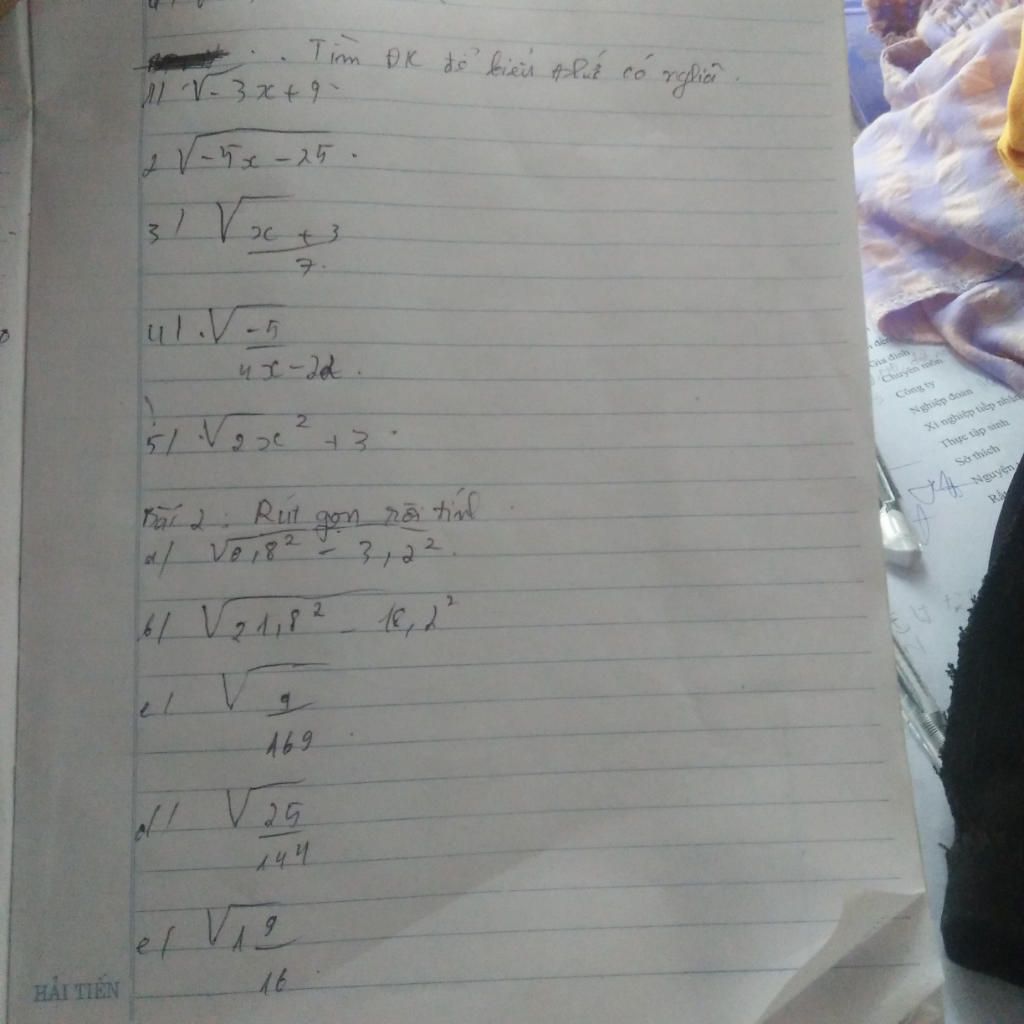 Tìm ĐK để biểu thức có nghĩa.
1) √-3x+9
2 √-5x-25.
3) √x+3
7.
4) √-5
4x-22.
5) √2x² + 3
Bài 2: Rút gọn rồi tính
a) √6,8² - 3,2².
b) √21,8² - 18,2²
c) √9
169
d) √25
144
e) √1 9
16
HẢI TIẾN
Gia đình
Chuyên môn
Công ty
Nghiệp đoàn
Xí nghiệp tiếp nhận
Thực tập sinh
Sở thích
Nguyện